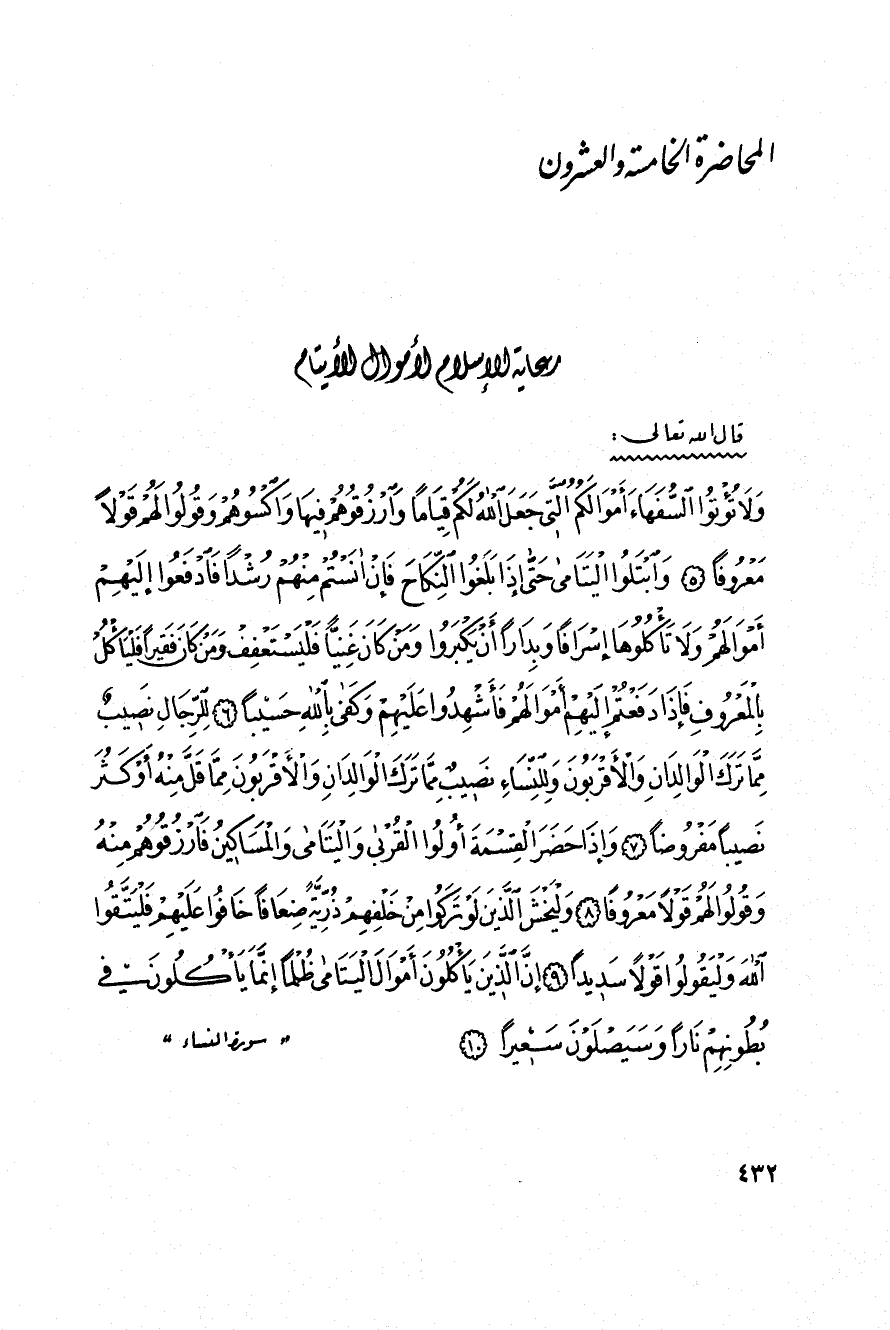 المحاضرة الخامسة والعشرون
رعاية الإسلام لأموال الأيتام
قال الله تعالى :
وَلَا تُؤْتُوا ٱلسُّفَهَاءَ أَمْوَالَكُمُ ٱلَّتِى جَعَلَ ٱللَّهُ لَكُمْ قِيَاماً وَٱرْزُقُوهُمْ فِيهَا وَٱكْسُوهُمْ وَقُولُوا لَهُمْ قَوْلاً
مَعْرُوفاً ۝٥ وَٱبْتَلُوا الْيَتَامىٰ حَتَّىٰ إِذَا بَلَغُوا ٱلنِّكَاحَ فَإِنْ اٰنَسْتُمْ مِنْهُمْ رُشْداً فَٱدْفَعُوا إِلَيْهِمْ
أَمْوَالَهُمْ وَلَا تَأْكُلُوهَا إِسْرَافاً وَبِدَاراً أَنْ يَكْبَرُوا وَمَنْ كَانَ غَنِيّاً فَلْيَسْتَعْفِفْ وَمَنْ كَانَ فَقِيراً فَلْيَأْكُلْ
بِالْمَعْرُوفِ فَإِذَا دَفَعْتُمْ إِلَيْهِمْ أَمْوَالَهُمْ فَأَشْهِدُوا عَلَيْهِمْ وَكَفىٰ بِٱللَّهِ حَسِيْباً ۝٦ لِلرِّجَالِ نَصِيبٌ
مِمَّا تَرَكَ الْوَالِدَانِ وَالْأَقْرَبُونَ وَلِلنِّسَاءِ نَصِيبٌ مِمَّا تَرَكَ الْوَالِدَانِ وَالْأَقْرَبُونَ مِمَّا قَلَّ مِنْهُ أَوْ كَثُرَ
نَصِيباً مَفْرُوضاً ۝٧ وَإِذَا حَضَرَ الْقِسْمَةَ أُولُوا الْقُرْبىٰ وَالْيَتَامىٰ وَالْمَسَاكِينُ فَٱرْزُقُوهُمْ مِنْهُ
وَقُولُوا لَهُمْ قَوْلاً مَعْرُوفاً ۝٨ وَلْيَخْشَ ٱلَّذِينَ لَوْ تَرَكُوا مِنْ خَلْفِهِمْ ذُرِّيَّةً ضِعَافاً خَافُوا عَلَيْهِمْ فَلْيَتَّقُوا
ٱللَّهَ وَلْيَقُولُوا قَوْلاً سَدِيداً ۝٩ إِنَّ ٱلَّذِينَ يَأْكُلُونَ أَمْوَالَ الْيَتَامىٰ ظُلْماً إِنَّمَا يَأْكُلُونَ فِي
بُطُونِهِمْ نَاراً وَسَيَصْلَوْنَ سَعِيراً ۝١٠ " سورة النساء "
٤٣٢